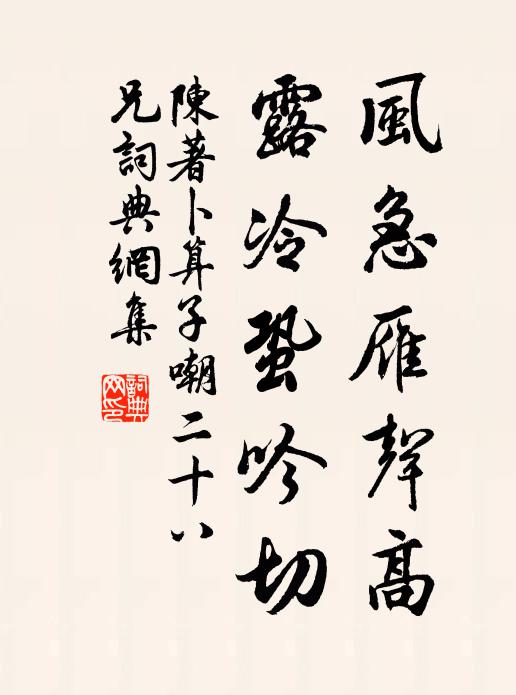 風急雁聲高
露冷蛩吟切
陳著卜算子嘲二十八
兄詞典網集
詞典
网印